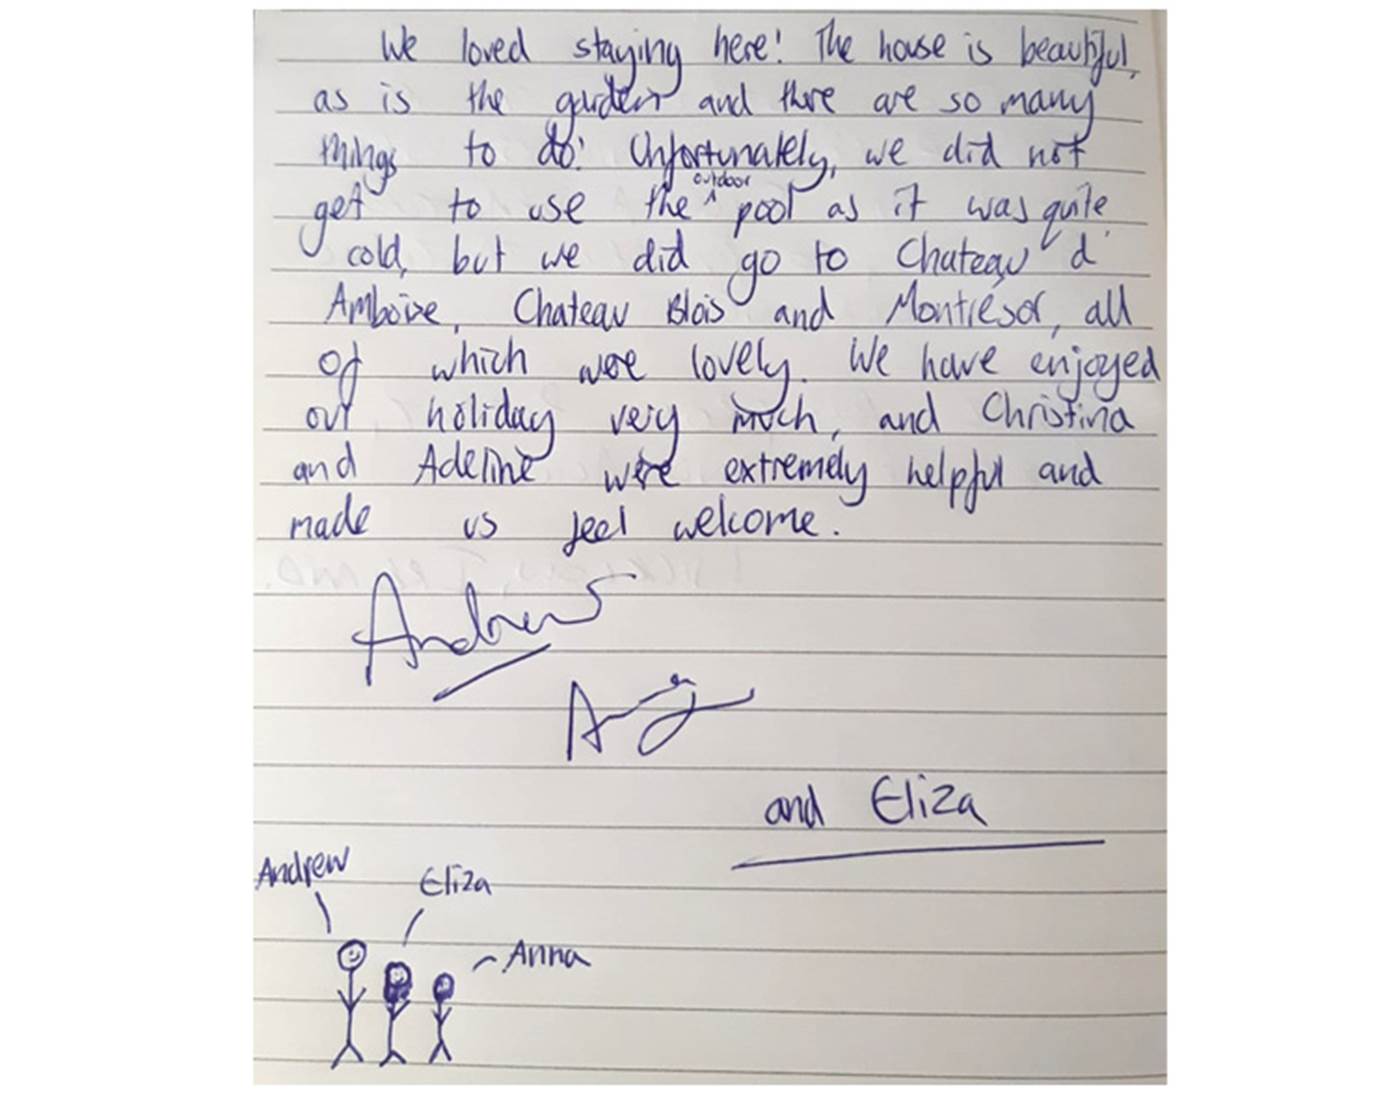 We loved staying here! The house is beautiful,
as is the garden and there are so many
things to do! Unfortunately, we did not
outdoor
get to use the ^ pool as it was quite
cold, but we did go to Chateau d'
Amboise, Chateau Blois and Montrésor, all
of which were lovely. We have enjoyed
our holiday very much, and Christina
and Adeline were extremely helpful and
made us feel welcome.
Andrew
and Eliza
Andrew
Eliza
Anna